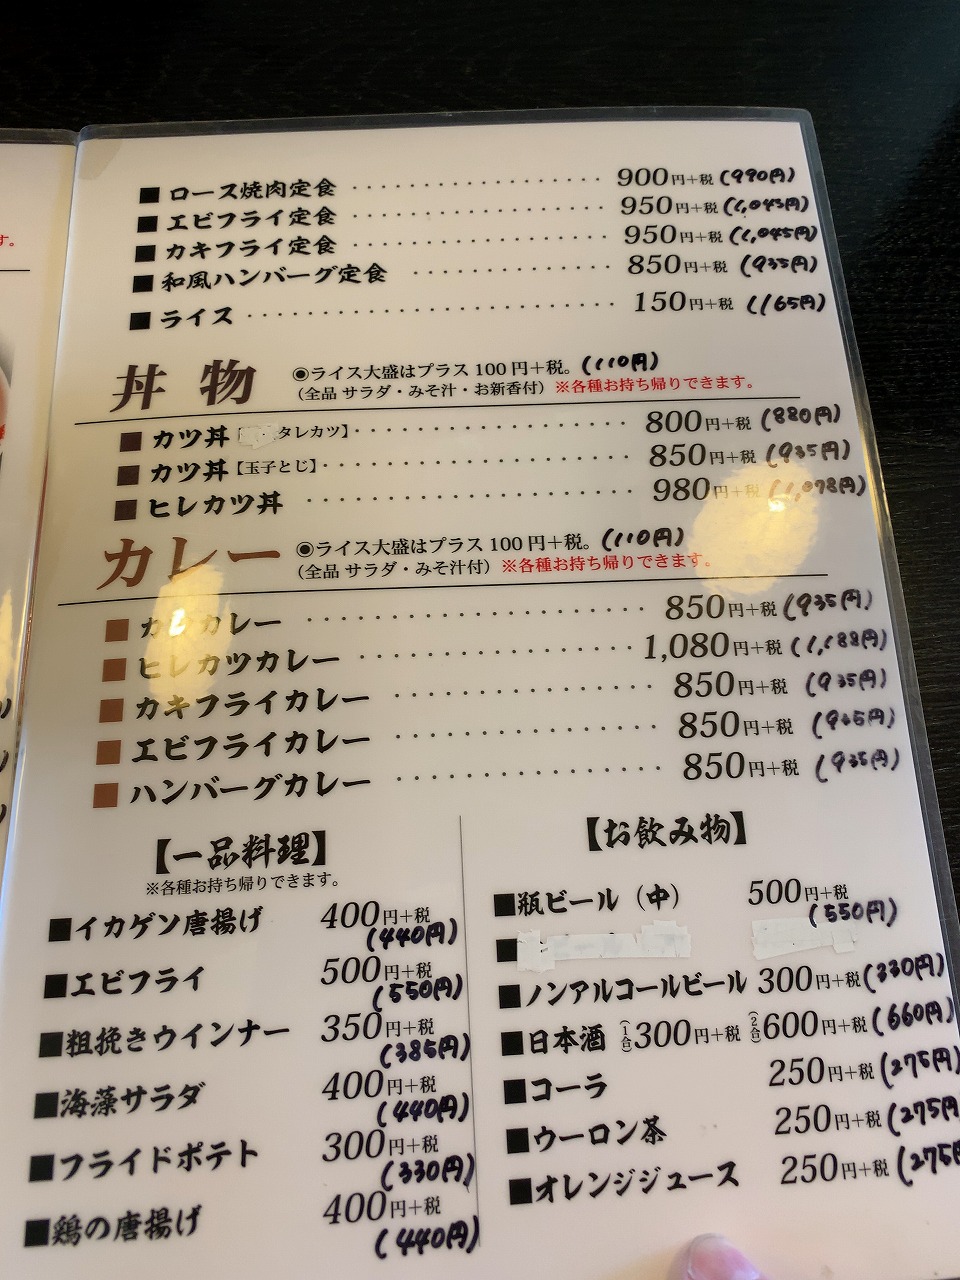 す。
■ ロース焼肉定食 ・・・・・・・・・・・・・・・・・・ 900円+税 (990円)
■ エビフライ定食 ・・・・・・・・・・・・・・・・・・ 950円+税 (1,045円)
■ カキフライ定食 ・・・・・・・・・・・・・・・・・・ 950円+税 (1,045円)
■ 和風ハンバーグ定食 ・・・・・・・・・・・・・・ 850円+税 (935円)
■ ライス ・・・・・・・・・・・・・・・・・・・・・・・・・ 150円+税 (165円)
丼物
◉ライス大盛はプラス100円+税。(110円)
(全品 サラダ・みそ汁・お新香付) ※各種お持ち帰りできます。
■ カツ丼【タレカツ】・・・・・・・・・・・・・・・・・・ 800円+税 (880円)
■ カツ丼【玉子とじ】・・・・・・・・・・・・・・・・・・・・ 850円+税 (935円)
■ ヒレカツ丼 ・・・・・・・・・・・・・・・・・・・・・・ 980円+税 (1,078円)
カレー
◉ライス大盛はプラス100円+税。(110円)
(全品 サラダ・みそ汁付) ※各種お持ち帰りできます。
■ カツカレー ・・・・・・・・・・・・・・・・・・・・・・・ 850円+税 (935円)
■ ヒレカツカレー ・・・・・・・・・・・・・・・・・・・ 1,080円+税 (1,188円)
■ カキフライカレー ・・・・・・・・・・・・・・・・・・ 850円+税 (935円)
■ エビフライカレー ・・・・・・・・・・・・・・・・・・ 850円+税 (935円)
■ ハンバーグカレー ・・・・・・・・・・・・・・・・・・ 850円+税 (935円)
【一品料理】
※各種お持ち帰りできます。
■イカゲソ唐揚げ 400円+税
(440円)
■エビフライ 500円+税
(550円)
■粗挽きウインナー 350円+税
(385円)
■海藻サラダ 400円+税
(440円)
■フライドポテト 300円+税
(330円)
■鶏の唐揚げ 400円+税
(440円)
【お飲み物】
■瓶ビール(中) 500円+税
(550円)
■
■ノンアルコールビール 300円+税 (330円)
■日本酒 (1合)300円+税 (2合)600円+税 (660円)
■コーラ 250円+税 (275円)
■ウーロン茶 250円+税 (275円
■オレンジジュース 250円+税 (275円